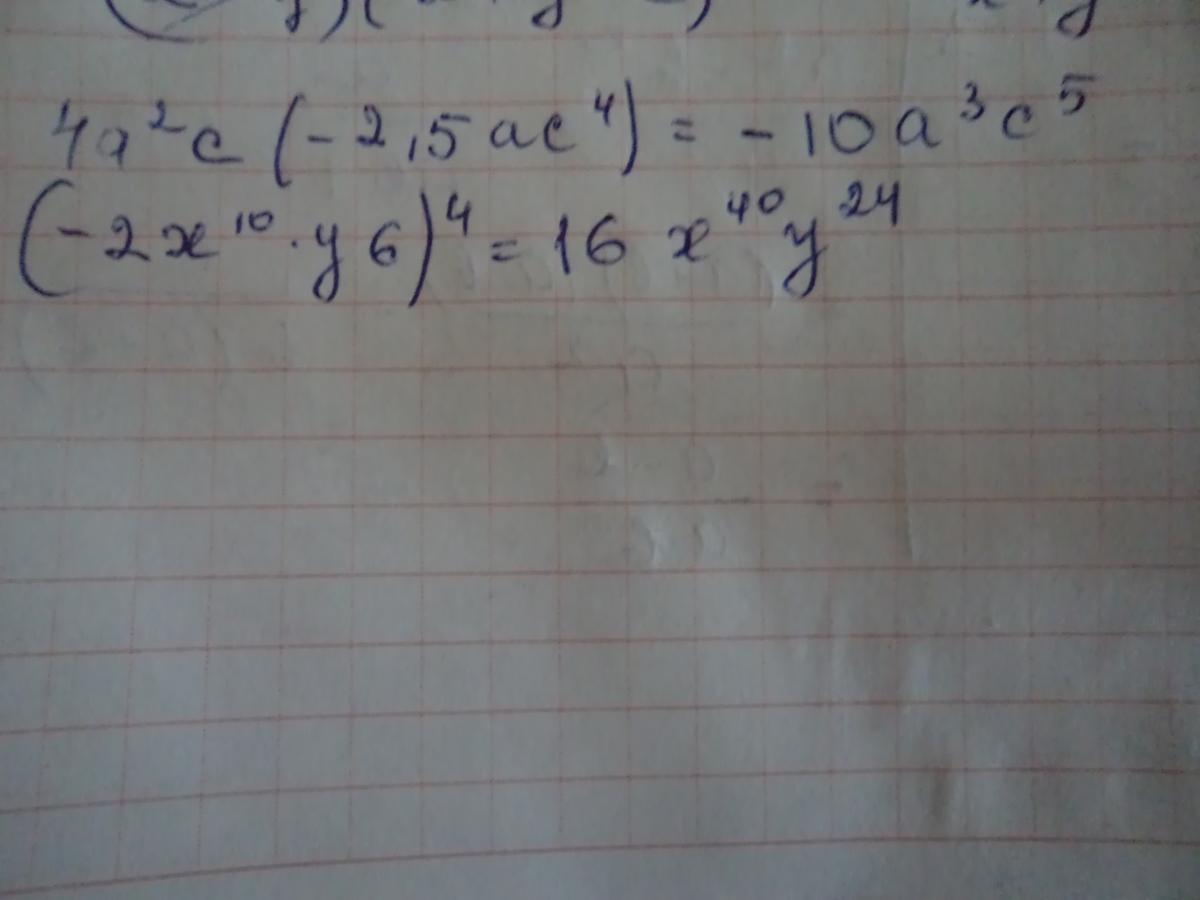 4a²c (-2,5ac⁴) = -10a³c⁵
(-2x¹⁰·y6)⁴ = 16 x⁴⁰y²⁴